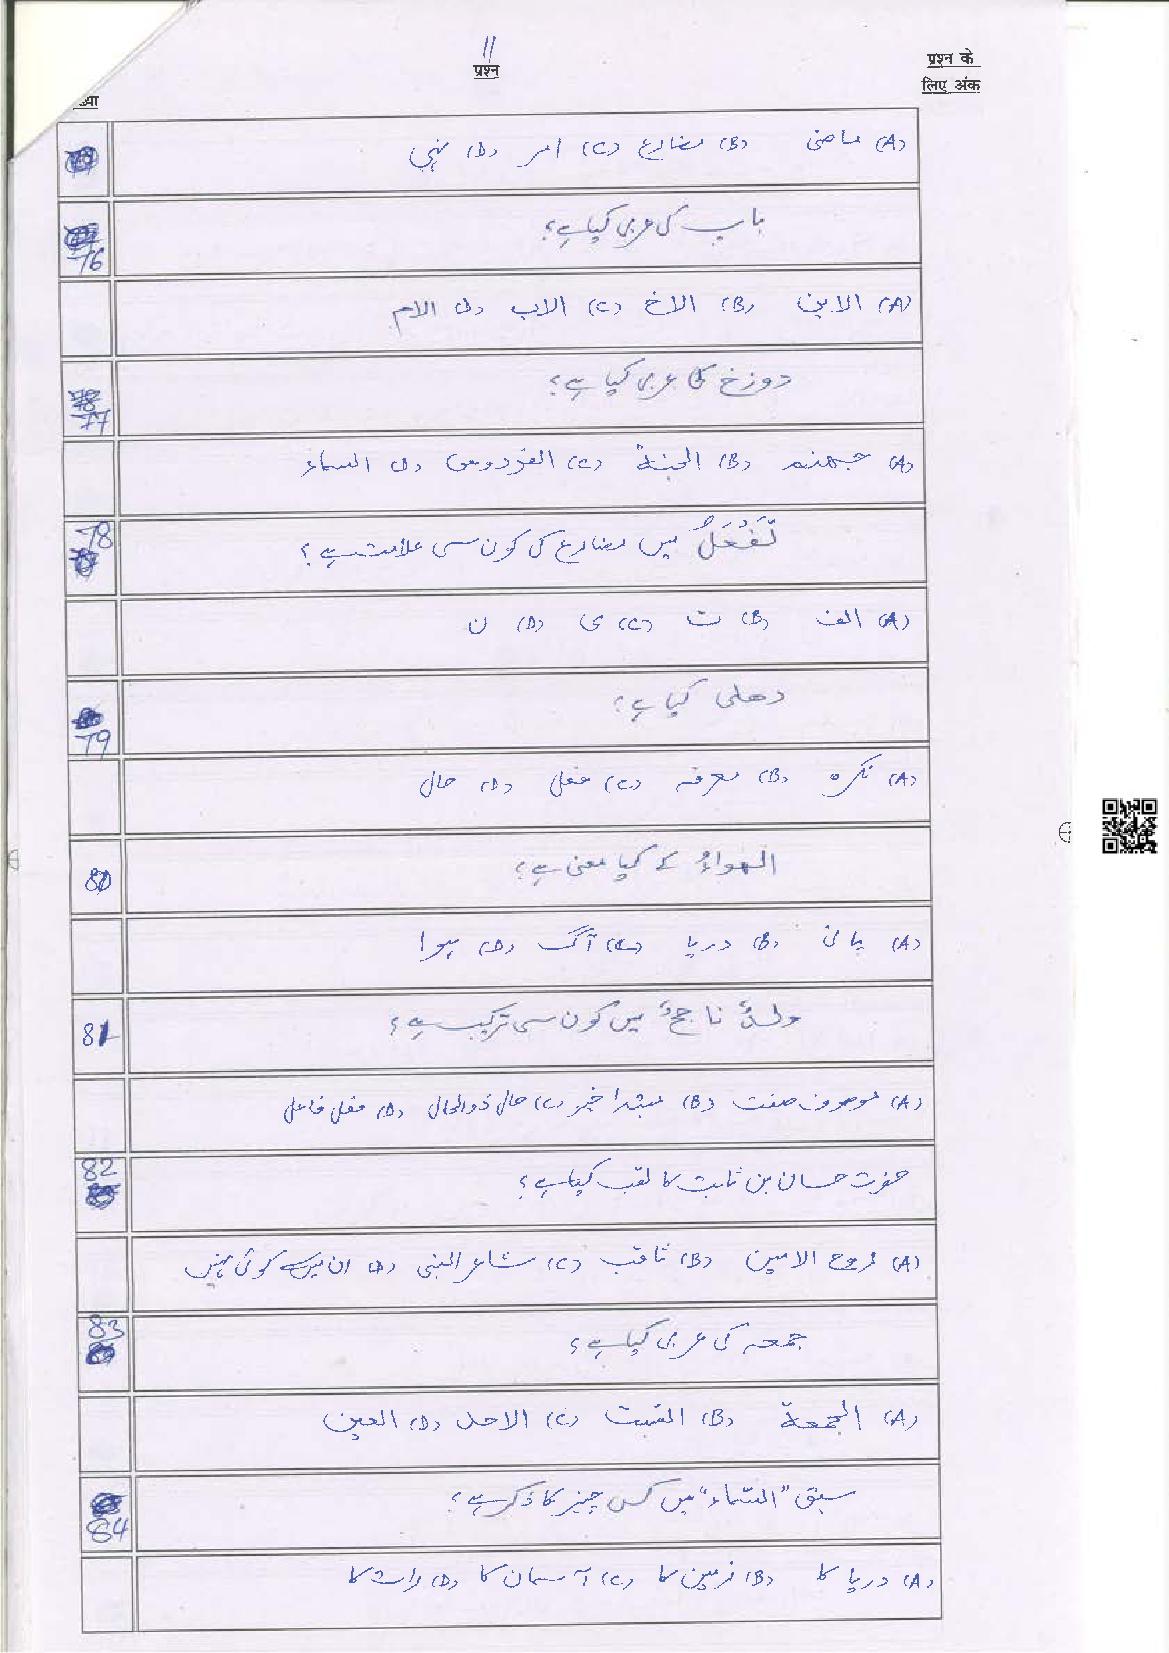 11
प्रश्न
प्रश्न के
लिए अंक
(A) ماضی (B) مضارع (C) امر (D) نہی
76 باپ کی عربی کیا ہے؟
(A) الابن (B) الاخ (C) الاب (D) الام
77 دوزخ کا عربی کیا ہے؟
(A) جہنم (B) الجنۃ (C) الفردوس (D) السماء
78 تَفْعَلُ میں مضارع کی کون سی علامت ہے؟
(A) الف (B) ت (C) ی (D) ن
79 دھلی کیا ہے؟
(A) نکرہ (B) معرفہ (C) فعل (D) حال
80 الھواءُ کے کیا معنی ہے؟
(A) پانی (B) دریا (C) آگ (D) ہوا
81 ولدٌ ناجحٌ میں کون سی ترکیب ہے؟
(A) موصوف صفت (B) مبتدا خبر (C) حال ذوالحال (D) فعل فاعل
82 حضرت حسان بن ثابت کا لقب کیا ہے؟
(A) روح الامین (B) ثاقب (C) شاعر النبی (D) ان میں سے کوئی نہیں
83 جمعہ کی عربی کیا ہے؟
(A) الجمعۃ (B) السبت (C) الاحد (D) العین
84 سبق "السّماء" میں کس چیز کا ذکر ہے؟
(A) دریا کا (B) زمین کا (C) آسمان کا (D) رات کا